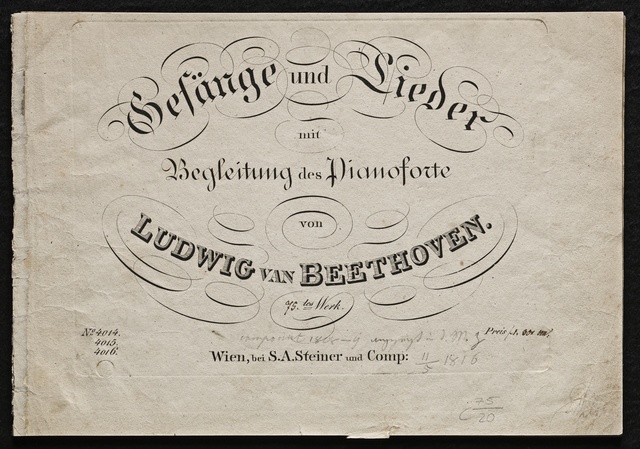 Gesänge und Lieder
mit
Begleitung des Pianoforte
von
LUDWIG VAN BEETHOVEN.
75.tes Werk.
No 4014.
4015.
4016.
Preis
Wien, bei S.A. Steiner und Comp:
11/5 1816
75/20